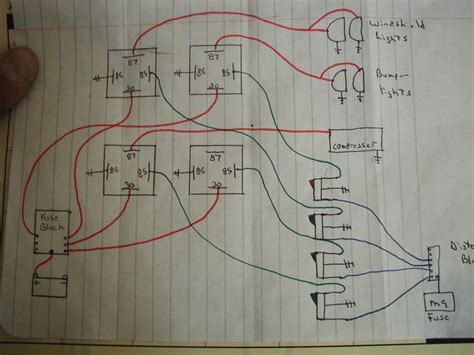 Windshield
lights
87
86
85
30
87
86
85
30
Bumper
lights
87
86
85
30
87
86
85
30
Compresser
Fuse
Block
+
-
Fuse